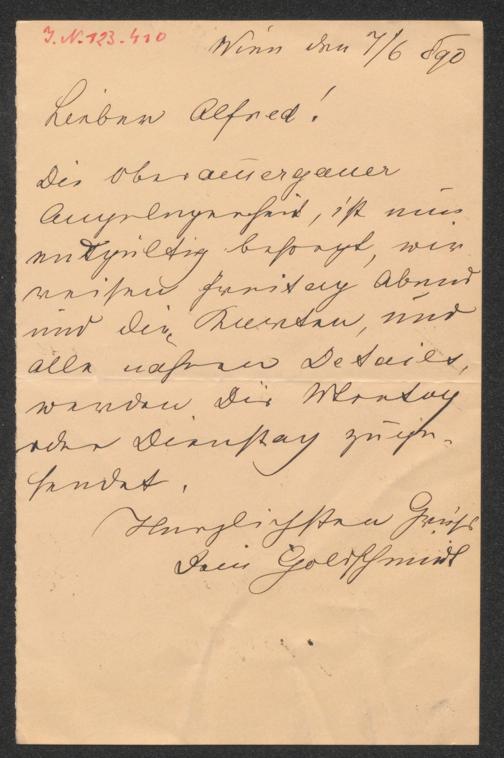 J. N. 123.410
Wien den 7/6 890
Lieber Alfred!
Die Oberauergauer
Angelegenheit, ist nun
entgültig besorgt, wir
reisen Freitag Abend
und die Karten, und
alle nähren Details,
werden Dir Montag
oder Dienstag zuge-
sendet.
Herzlichsten Gruß
Dein Goldschmidt